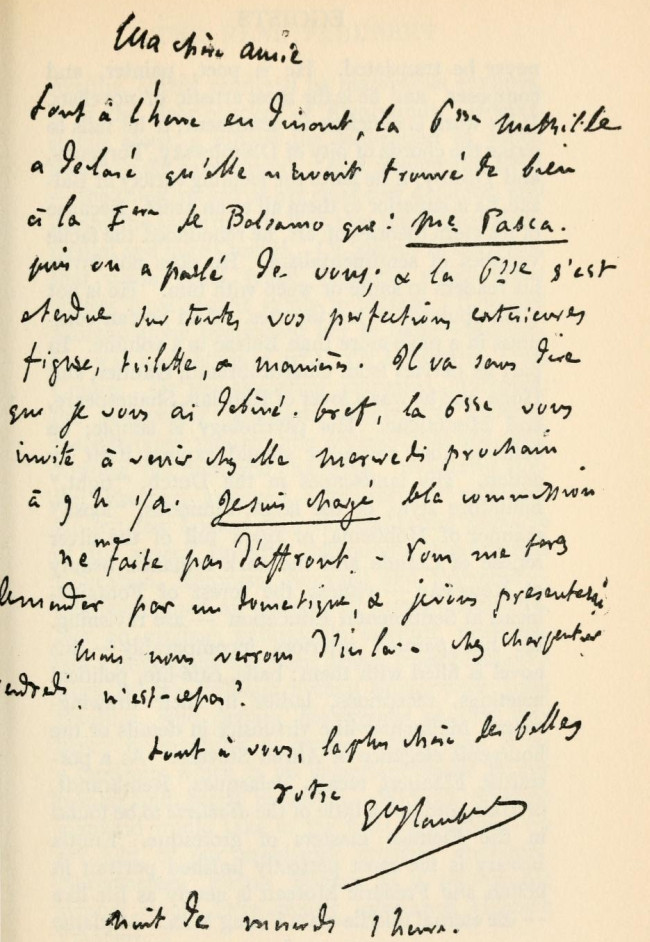 Ma chère amie
Tout à l'heure en dinant, la Psse Mathilde
a déclaré qu'elle n'avait trouvé de bien
à la Ière de Balsamo que: Me Pasca.
puis on a parlé de vous; & la Psse s'est
étendue sur toutes vos perfections extérieures
figure, toilette, & manières. Il va sans dire
que je vous ai débiné. bref, la Psse vous
invite à venir chez elle mercredi prochain
à 9 h 1/2. Je suis chargé de la commission
ne me faite pas d'affront. - Vous me ferez
demander par un domestique, & je vous présenterai
Mais nous verrons d'ici là - chez Charpentier
vendredi, n'est-ce pas?
tout à vous, la plus chère des belles
votre
GveFlaubert
nuit de mercredi 1 heure.